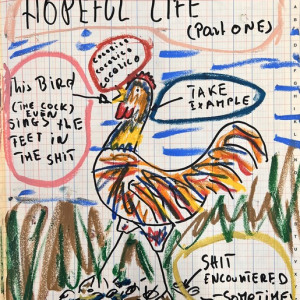 HOPEFUL LIFE
(Part ONE)
COCORICO
COCORICO
COCORICO
This BIRD
(THE COCK)
EVEN
SINGS the
FEET IN
THE SHIT
TAKE
EXAMPLE
SHIT
ENCOUNTERED
SOMETIME